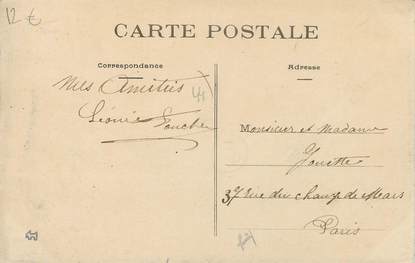 12 €
CARTE POSTALE
Correspondance
Adresse
Mes Amitiés
Léonie
Monsieur et Madame
37 rue du champ de Mars
Paris